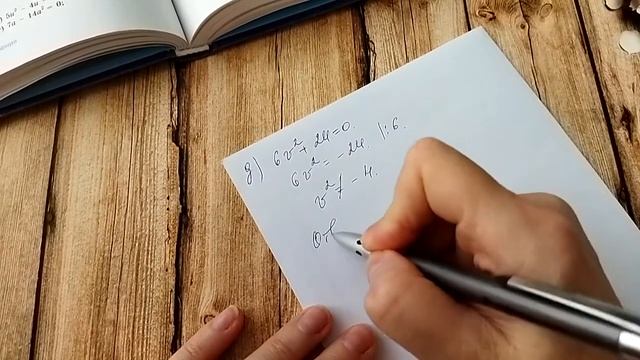 5u² - 4u
7a - 14a² = 0;
g) 6v² + 24 = 0.
6v² = -24. |:6.
v² ≠ -4.
От